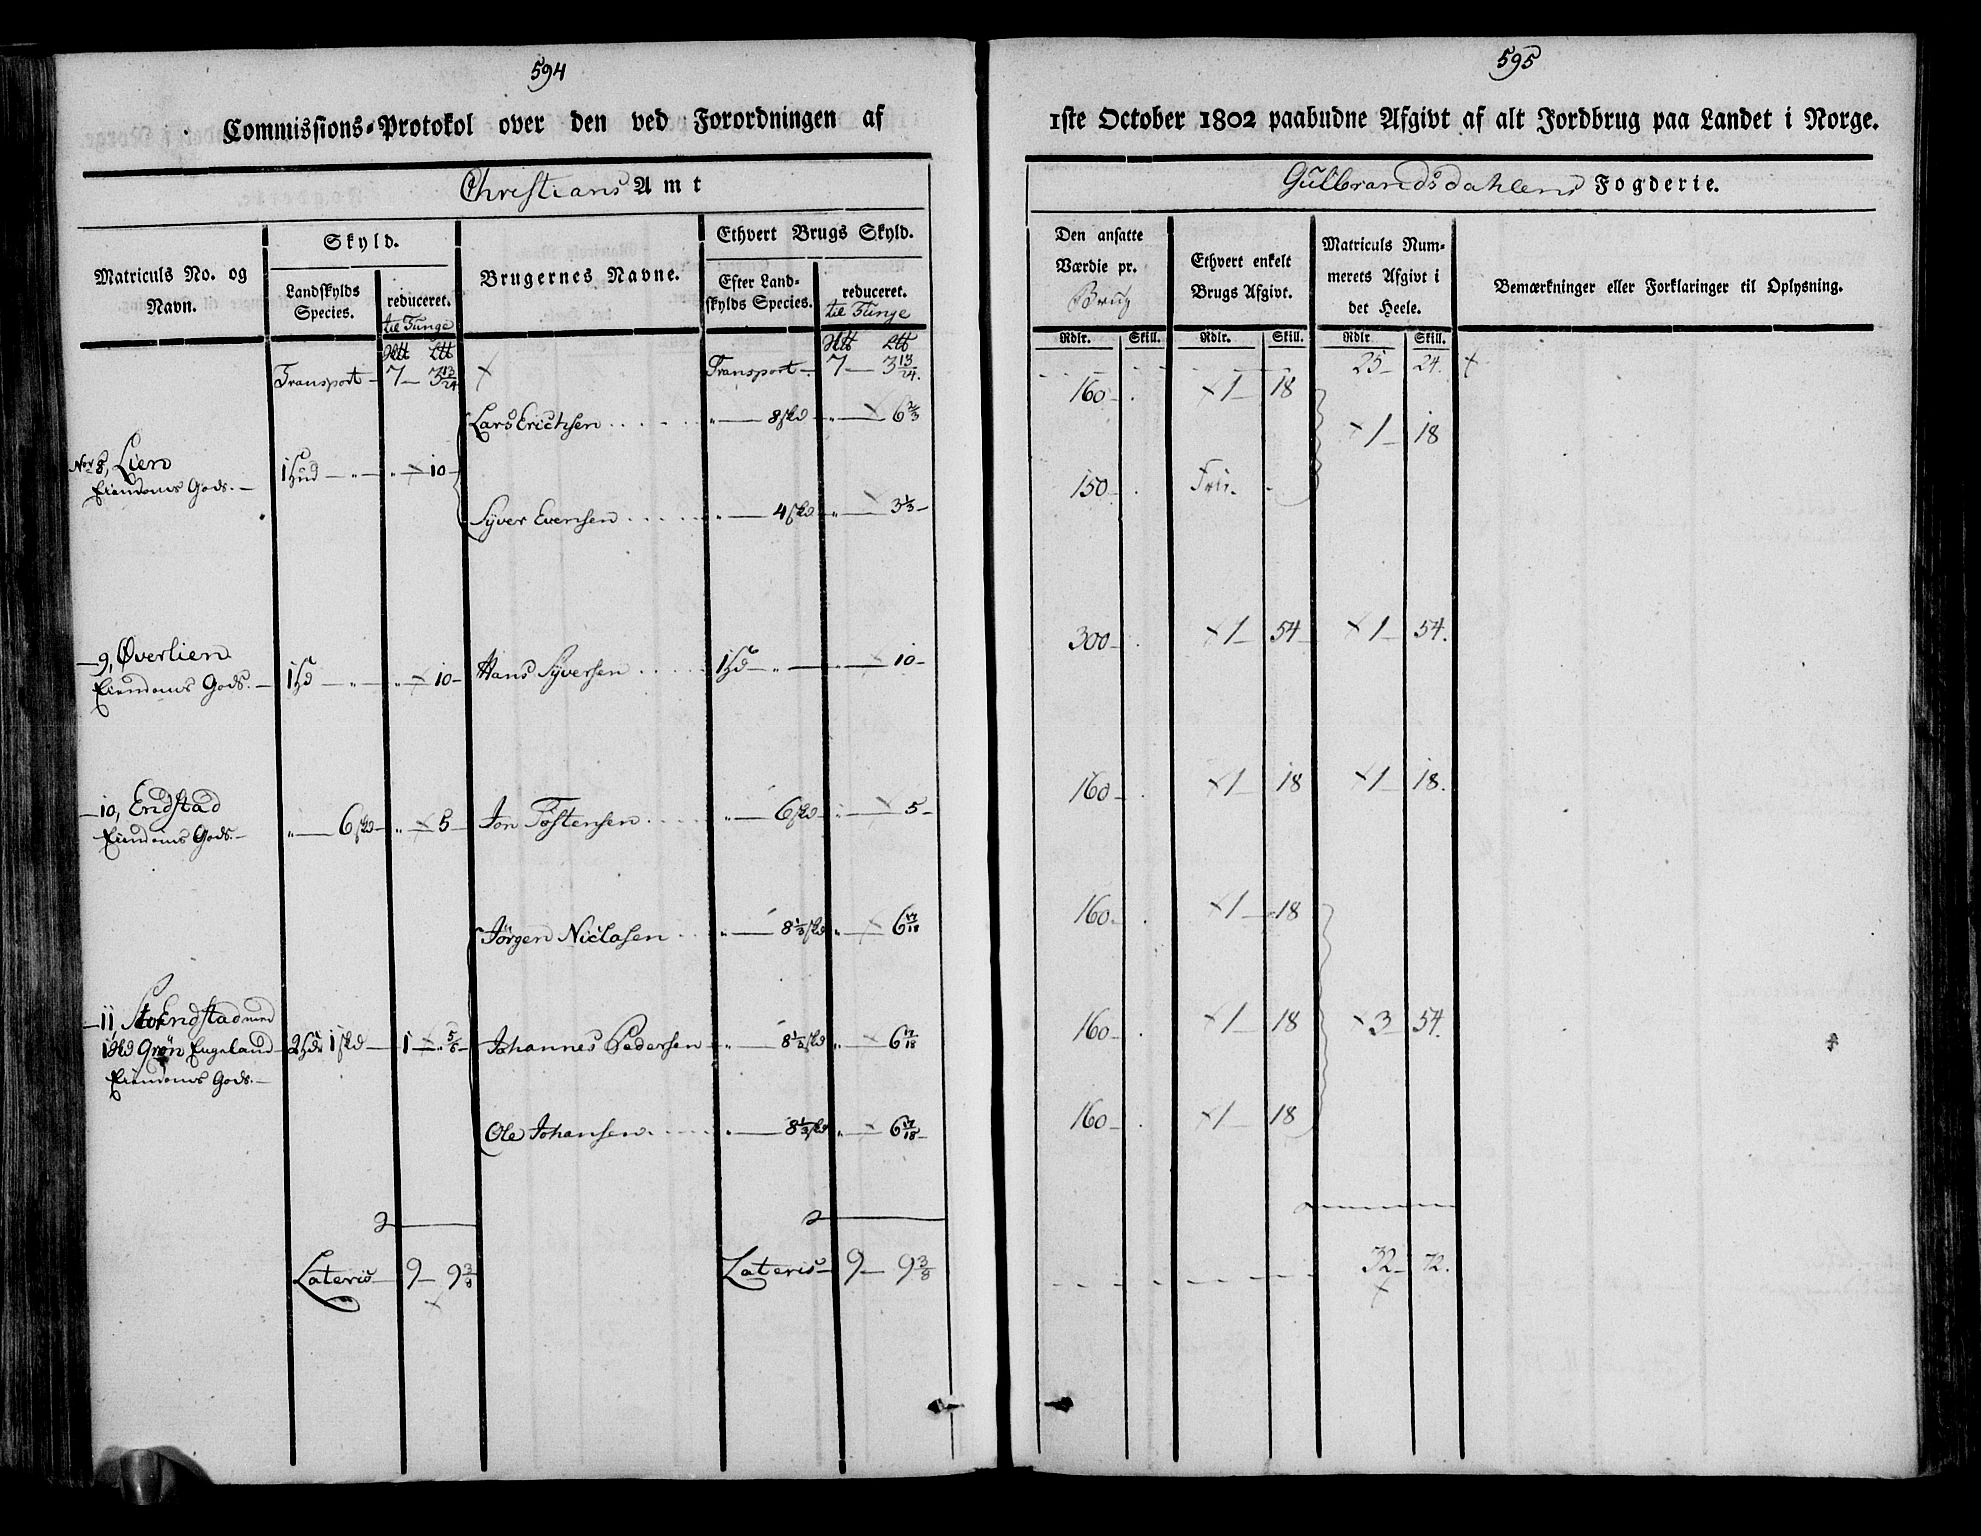 594
Commissions-Protokol over den ved Forordningen af
Christians Amt
Matriculs No. og Navn.
Skyld.
Landskylds Species.
reduceret. til Tunge
Htt Ltt
Brugernes Navne.
Ethvert Brugs Skyld.
Efter Landskylds Species.
reduceret. til Tunge
Htt Ltt
Transport 7 3 13/24 Transport 7 3 13/24.
Lars Erichsen 8 skd 6 2/3
No 8, Lien 1 Hud 10
Eiendoms Gods.
Syver Evensen 4 skd 3 1/3
9, Øverlien 1 Hd 10 Hans Syversen 1 Hd 10
Eiendoms Gods.
10, Endstad 6 skd 5 Jon Tostensen 6 skd 5
Eiendoms Gods.
Jörgen Niclasen 8 1/3 skd 6 17/18
11, Stor Endstad med
1 Hd Grøn Engeland 2 Hdr 1 skd 1 5/6 Johannes Pedersen 8 1/3 skd 6 17/18
Eiendoms Gods.
Ole Johansen 8 1/3 skd 6 17/18
Lateris 9 9 3/8 Lateris 9 9 3/8
595
1ste October 1802 paabudne Afgivt af alt Jordbrug paa Landet i Norge.
Gulbrandsdahlens Fogderie.
Den ansatte Værdie pr. Brug
Ethvert enkelt Brugs Afgivt.
Matriculs Nummerets Afgivt i det Heele.
Bemærkninger eller Forklaringer til Oplysning.
Rdlr. Skill. Rdlr. Skill. Rdlr Skill.
25 24.
160 1 18
1 18
150 Frie.
300 1 54 1 54.
160 1 18 1 18.
160 1 18
160 1 18 3 54.
160 1 18
32 72.